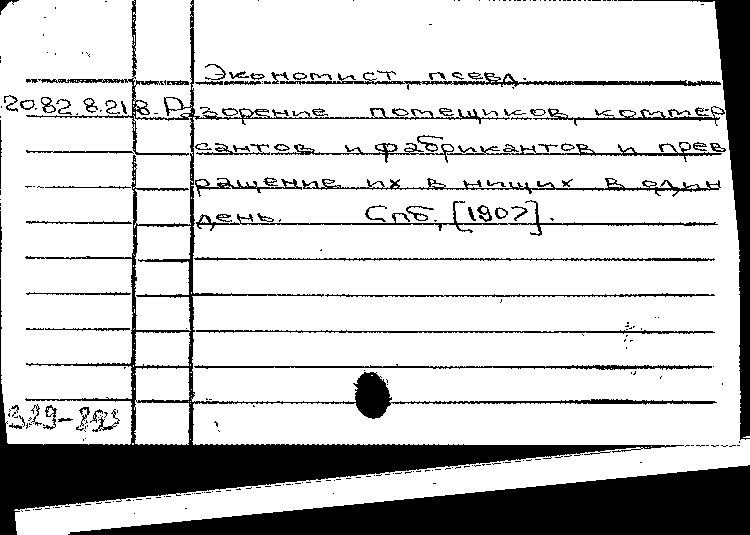 Экономист, псевд.
20.82.8.218. Разорение помещиков, коммер
сантов и фабрикантов и прев
ращение их в нищих в один
день. Спб., [1907].
329-893